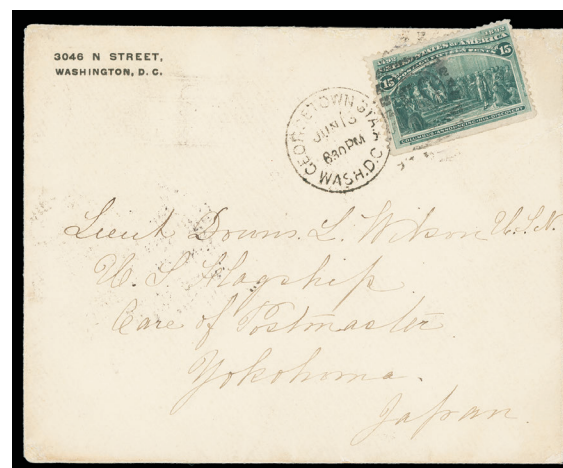 3046 N STREET,
WASHINGTON, D. C.
UNITED STATES OF AMERICA
15
15
COLUMBUS ANNOUNCING HIS DISCOVERY
GEORGETOWN STA.
JUN 13
630PM
WASH.D.C.
Lieut Downs. L. Wilson U.S.N.
U. S. Flagship.
Care of Postmaster
Yokohoma.
Japan.